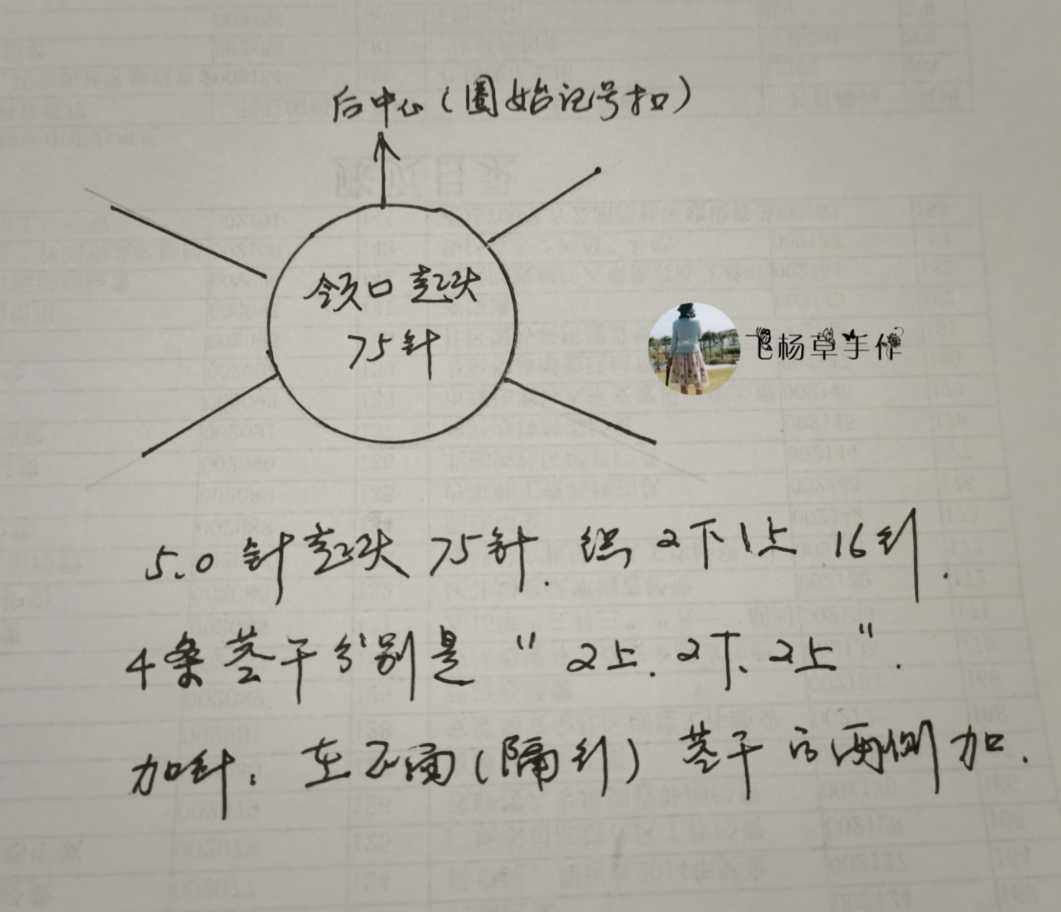 后中心(圈始记号扣)
领口起头
75针
飞杨草手作
5.0针起头75针.织2下1上16针.
4条茎干分别是"2上.2下.2上".
加针:在正面(隔针)茎干的两侧加.